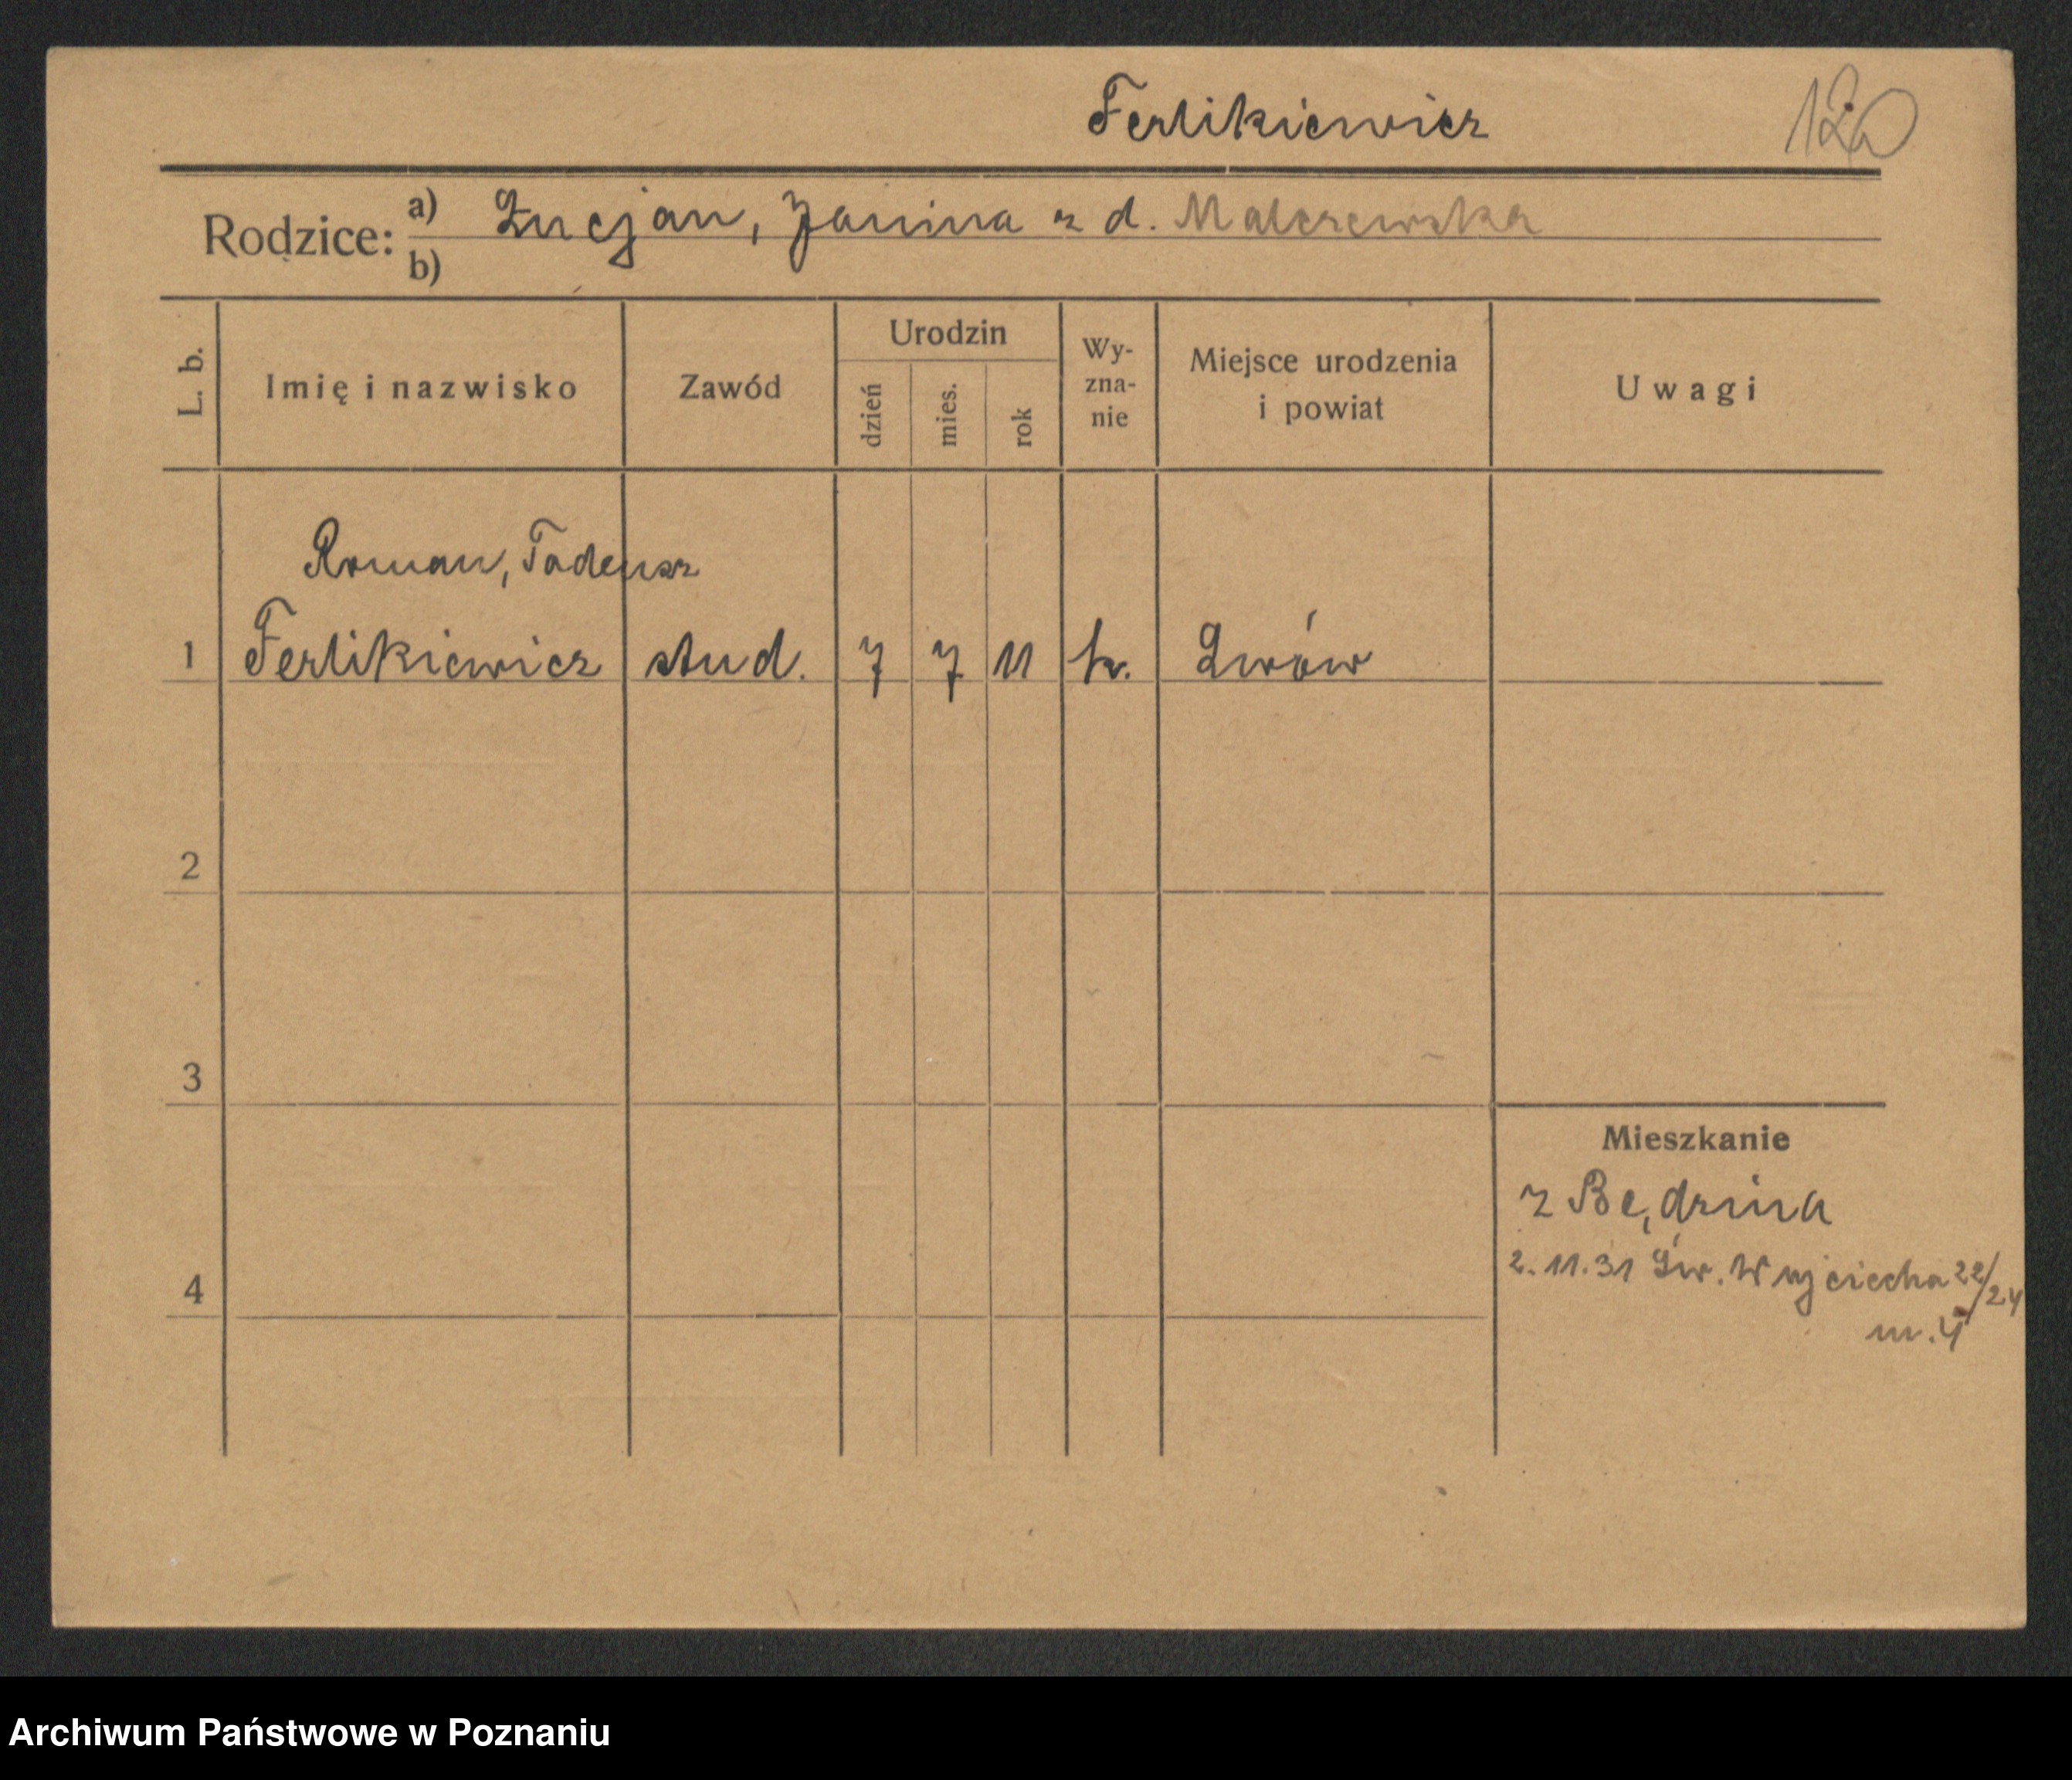 Ferlikiewicz 120
Rodzice: a) Łucjan, Janina z d. Malczewska
b)
L. b. Imię i nazwisko Zawód Urodzin dzień mies. rok Wy-zna-nie Miejsce urodzenia i powiat Uwagi
Roman, Tadeusz
1 Ferlikiewicz stud. 7 7 11 k. Lwów
2
3
Mieszkanie
z Będzina
2.11.31 Św. Wojciecha 22/24
4
m. 4
Archiwum Państwowe w Poznaniu